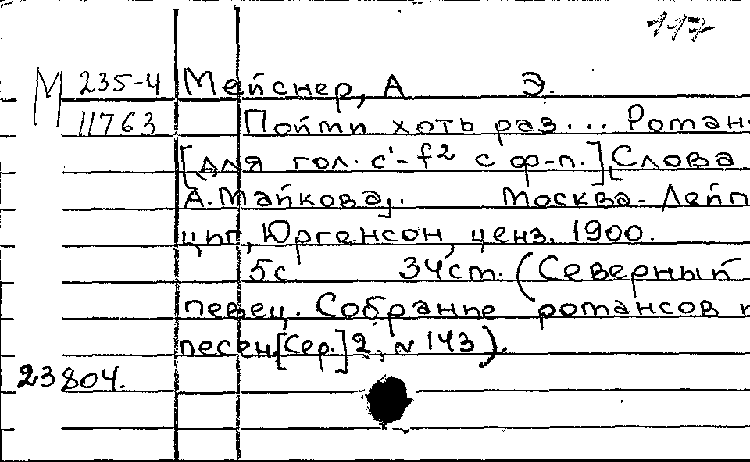 117
М 235-4 Мейснер, А Э.
11763 Пойми хоть раз... Роман
[для гол. c'-f² с ф-п.] [Слова
А. Майкова]. Москва-Лейп
циг, Юргенсон, ценз. 1900.
5с 34ст. (Северный
певец. Собрание романсов и
песен [Сер.] 2, № 143).
23804.